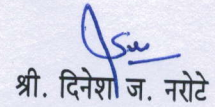 श्री. दिनेश ज. नरोटे